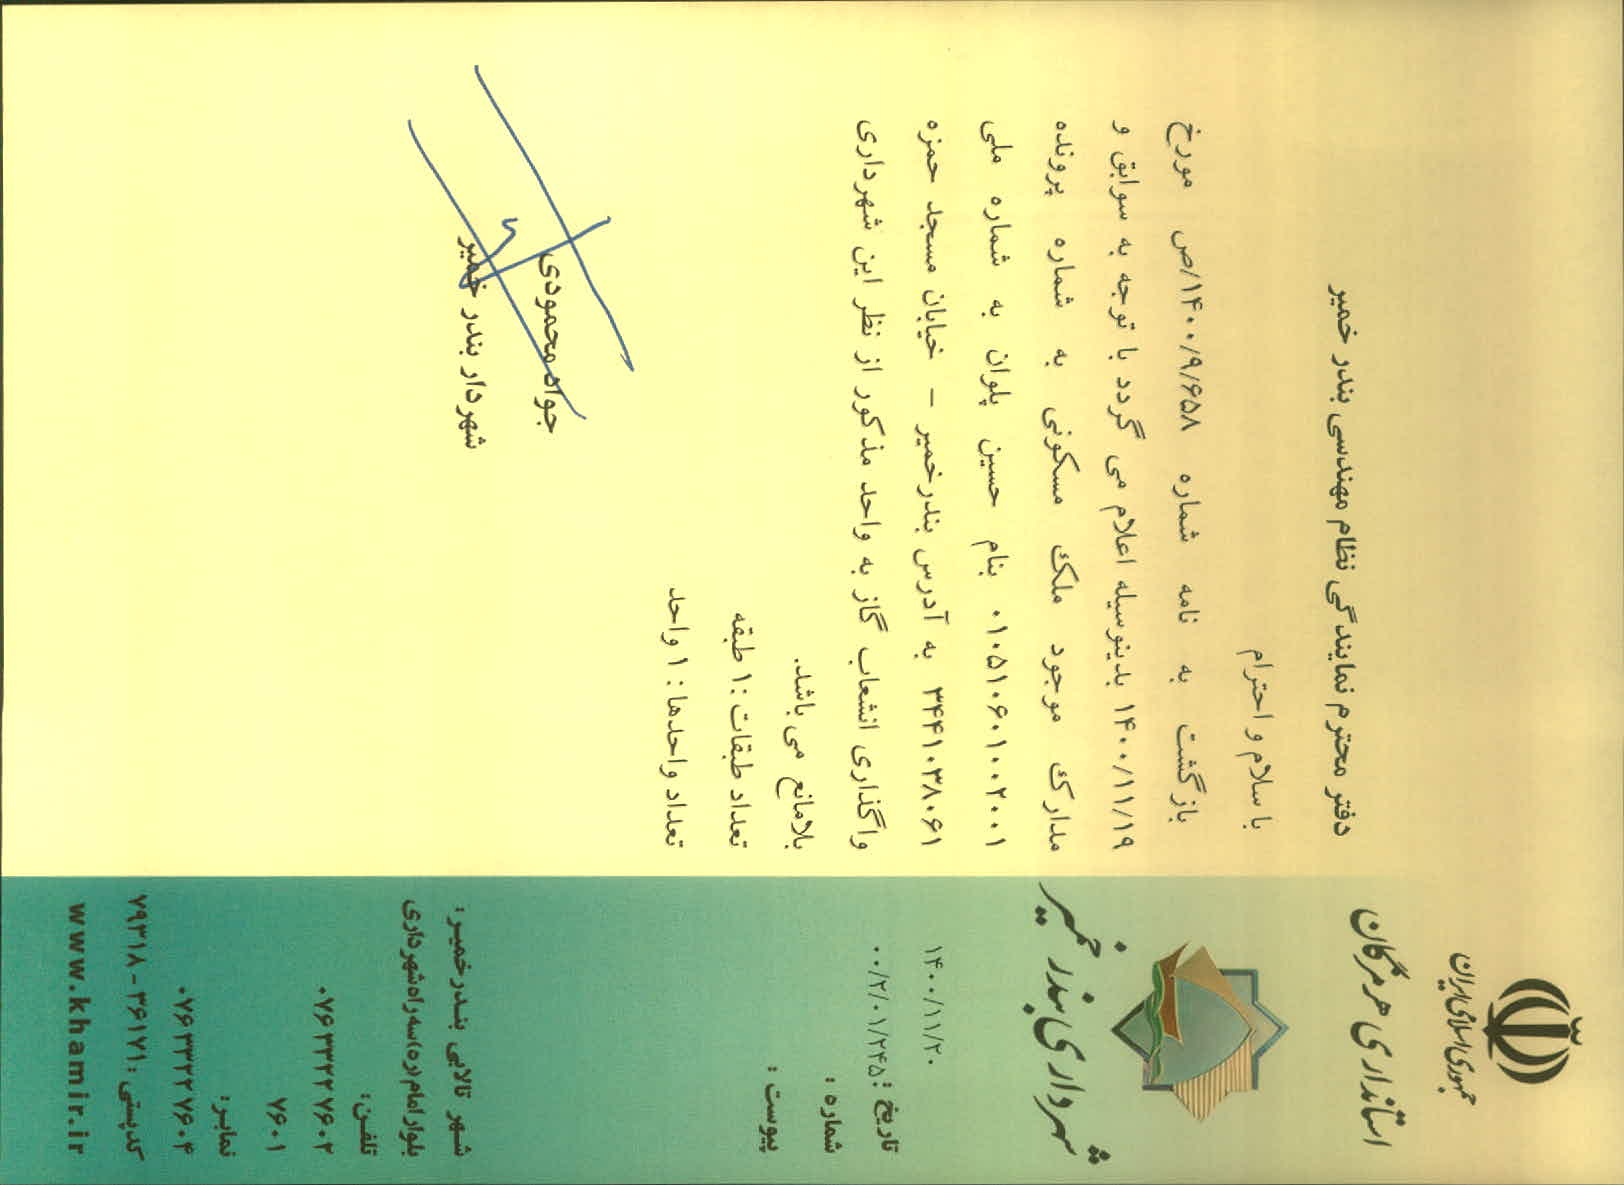 جمهوری اسلامی ایران
استانداری هرمزگان
شهرداری بندر خمیر
۱۴۰۰/۱۱/۲۰
تاریخ : ۰۰/۲/۰۱/۲۴۵
شماره :
پیوست :
دفتر محترم نمایندگی نظام مهندسی بندر خمیر
با سلام و احترام
بازگشت به نامه شماره ۱۴۰۰/۹/۶۵۸/ص مورخ
۱۴۰۰/۱۱/۱۹ بدینوسیله اعلام می گردد با توجه به سوابق و
مدارک موجود ملک مسکونی به شماره پرونده
۰۱۰۵۱۰۶۰۱۰۰۲۰۰۱ بنام حسین پلوان به شماره ملی
۳۴۴۱۰۳۸۰۶۱ به آدرس بندرخمیر – خیابان مسجد حمزه
واگذاری انشعاب گاز به واحد مذکور از نظر این شهرداری
بلامانع می باشد.
تعداد طبقات :۱ طبقه
تعداد واحدها : ۱ واحد
جواد محمودی
شهردار بندر خمیر
شهر تالابی بندرخمیر:
بلوار امام (ره) سه راه شهرداری
تلفن:
۰۷۶۳۳۲۲۷۶۰۲
۷۶۰۱
نمابر:
۰۷۶۳۳۲۲۷۶۰۴
کدپستی : ۳۶۱۷۱ - ۷۹۳۱۸
www.khamir.ir